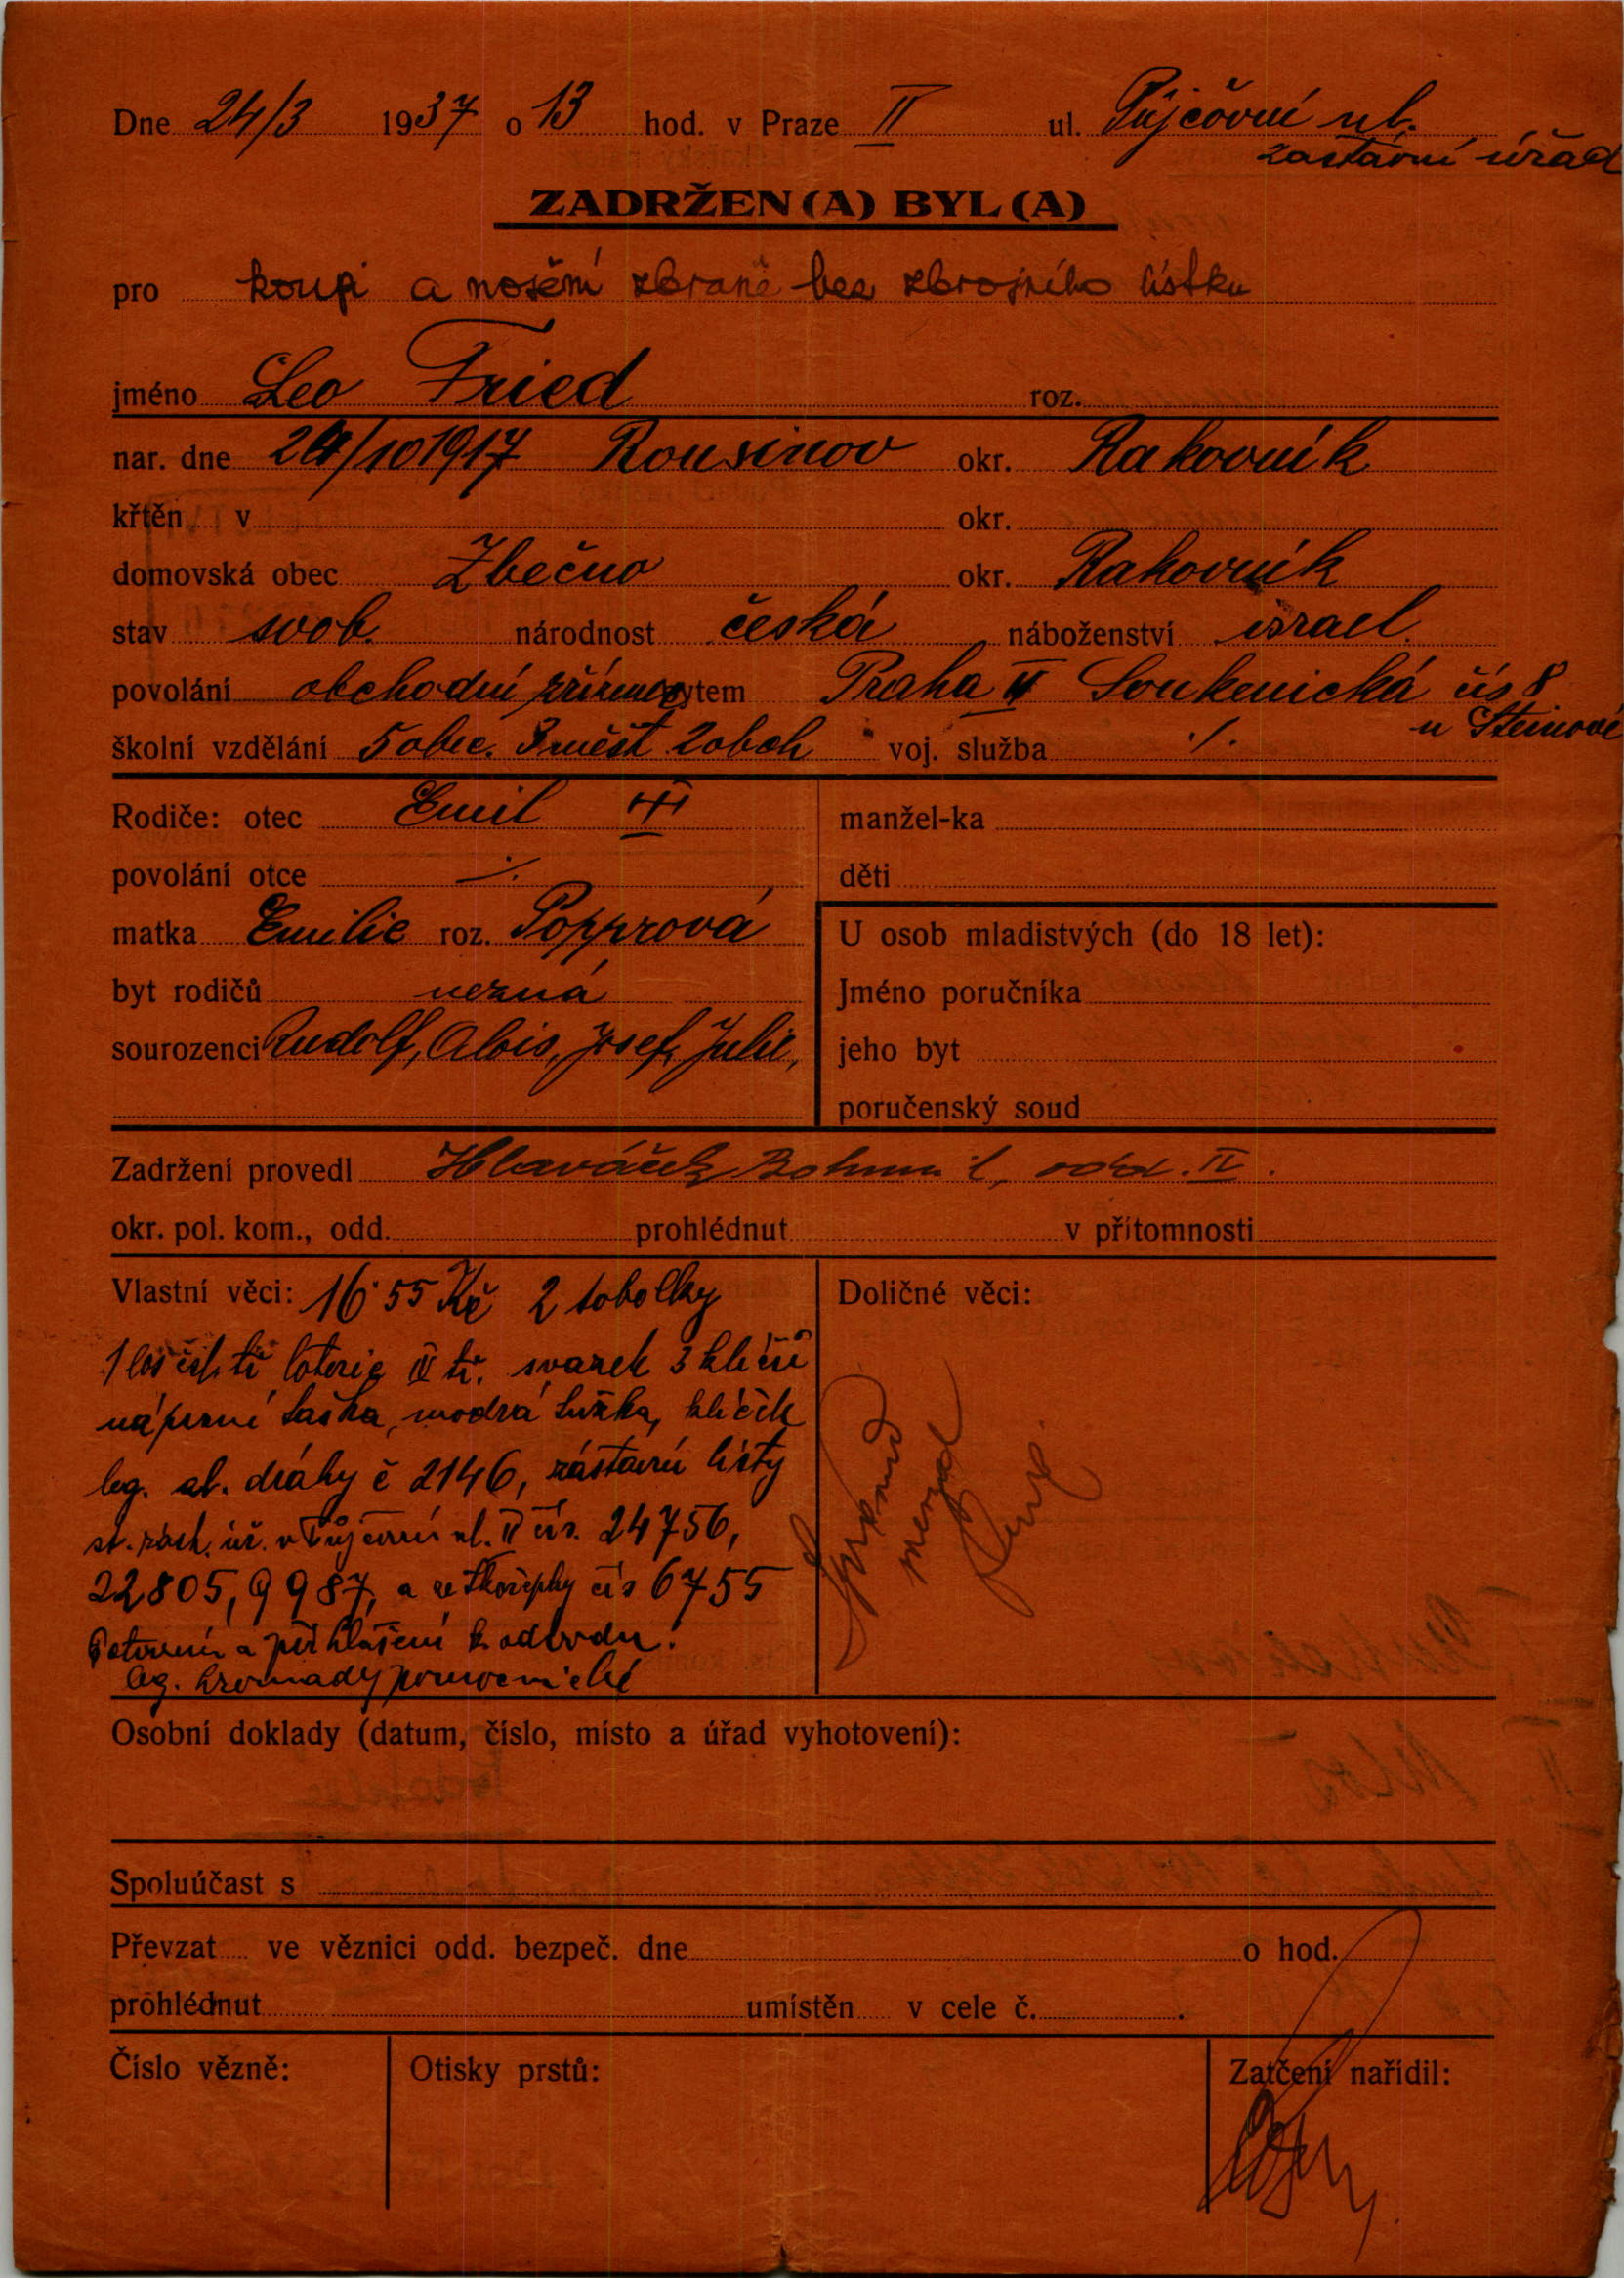 Dne 24/3 1937 o 13 hod. v Praze II ul. Půjčovní ul.
zastavní úřad
ZADRŽEN(A) BYL(A)
pro koupi a nošení zbraně bez zbrojního lístku
jméno Leo Fried roz.
nar. dne 24/10 1917 Rousinov okr. Rakovník
křtěn v okr.
domovská obec Zbečno okr. Rakovník
stav svob. národnost česká náboženství israel.
povolání obchodní zřízenec bytem Praha II Soukenická čís 8
u Steinové
školní vzdělání 5 obec. 3 měšť. 2 obch voj. služba ./.
Rodiče: otec Emil
manžel-ka
povolání otce ./.
děti
matka Emilie roz. Popprová
U osob mladistvých (do 18 let):
byt rodičů nezná
Jméno poručníka
sourozenci Rudolf, Alois, Josef, Julie,
jeho byt
poručenský soud
Zadržení provedl Hlaváček Bohumil, odd. IV.
okr. pol. kom., odd. prohlédnut v přítomnosti
Vlastní věci: 16·55 Kč 2 tobolky
Doličné věci:
1 los čsl. tř. loterie IV tř. svazek 3 klíčů
náprsní taška, modrá tužka, klíček
leg. el. dráhy č 2146, zástavní listy
st. zást. úř. v Půjčovní ul. II čís. 24756,
22805, 9987, a ze čís 6755
Potvrzení a přihlášení k odvodu.
leg. hromady pomocnické
Osobní doklady (datum, číslo, místo a úřad vyhotovení):
Spoluúčast s
Převzat ve věznici odd. bezpeč. dne o hod.
prohlédnut umístěn v cele č. .
Číslo vězně:
Otisky prstů:
Zatčení nařídil: